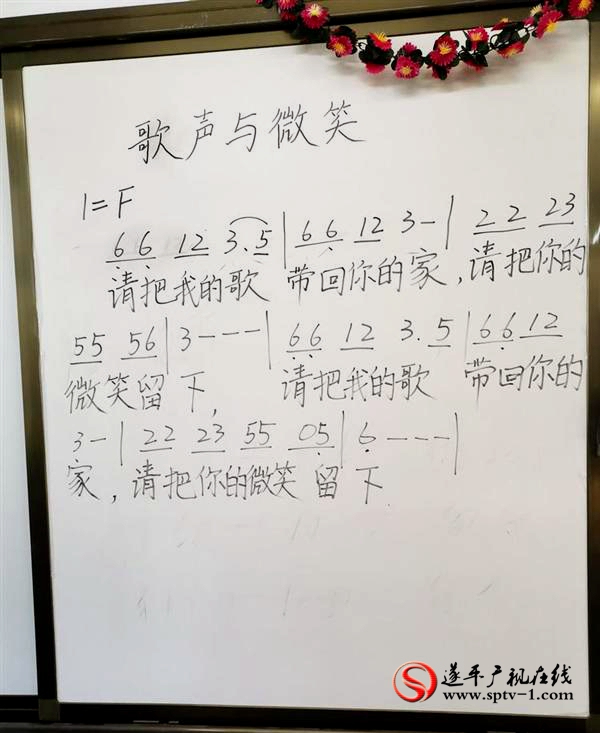 歌声与微笑
1=F
6 6 12 3. 5 | 6 6 12 3 - | 22 23
请把我的歌 带回你的家,请把你的
55 56 | 3 - - - | 66 12 3. 5 | 66 12
微笑留下, 请把我的歌 带回你的
3 - | 22 23 55 05 | 6 - - - |
家,请把你的微笑 留下
遂平广视在线
www.sptv-1.com